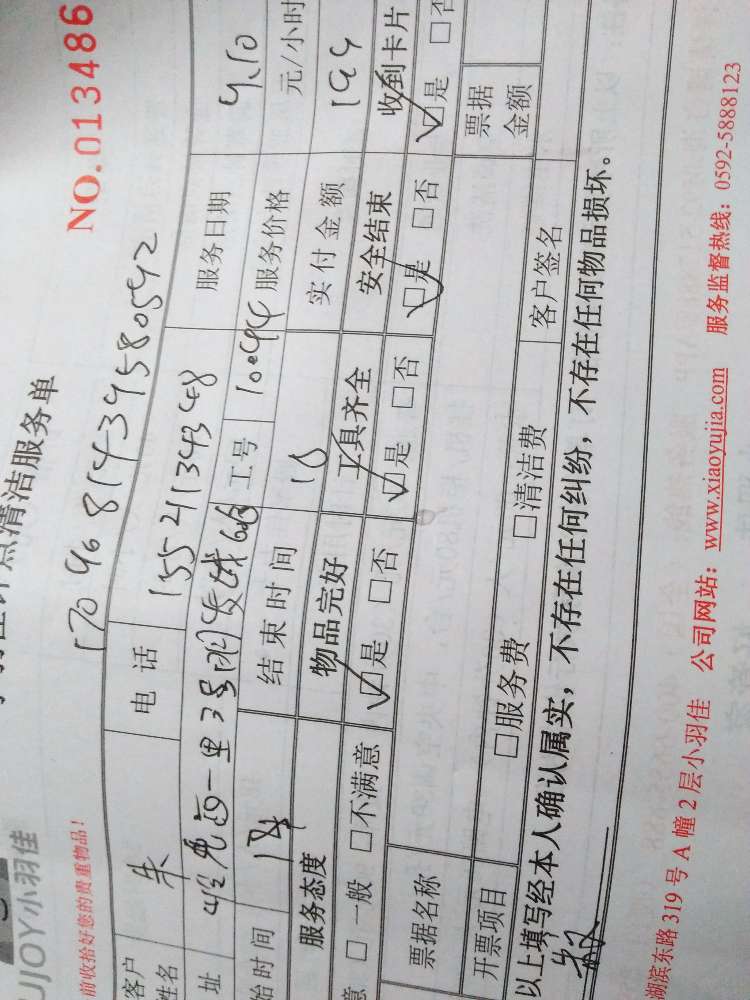 UJOY小羽佳
计点清洁服务单
NO.013486
前收拾好您的贵重物品!
客户姓名 朱 电话 15521134348 服务日期 9.10
址 工号 服务价格 元/小时
始时间 结束时间 实付金额 199
服务态度 物品完好 工具齐全 安全结束 收到卡片
意 □一般 □不满意 ☑是 □否 ☑是 □否 ☑是 □否 ☑是 □否
票据名称 票据金额
开票项目 □服务费 □清洁费 客户签名
以上填写经本人确认属实,不存在任何纠纷,不存在任何物品损坏。
湖滨东路 319 号 A 幢 2 层小羽佳 公司网站:www.xiaoyujia.com 服务监督热线:0592-5888123